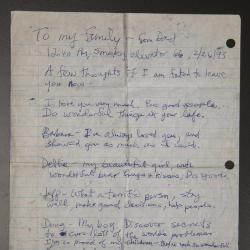 To my family -
42nd Fl, smoky elevator 66, 2/26/93
A few thoughts if I am fated to leave
you now -
I love you very much. Be good people.
Do wonderful things in your life.
Barbara - I've always loved you, and
showed you as much as I could.
Debbie - my beautiful girl, with
wonderful bear hugs & kisses, Do good.
Jeff - What a terrific person, stay
well, make good decisions, help people.
Doug - My boy, Discover secrets
to cure most of the world's problems
I'm so proud of my children